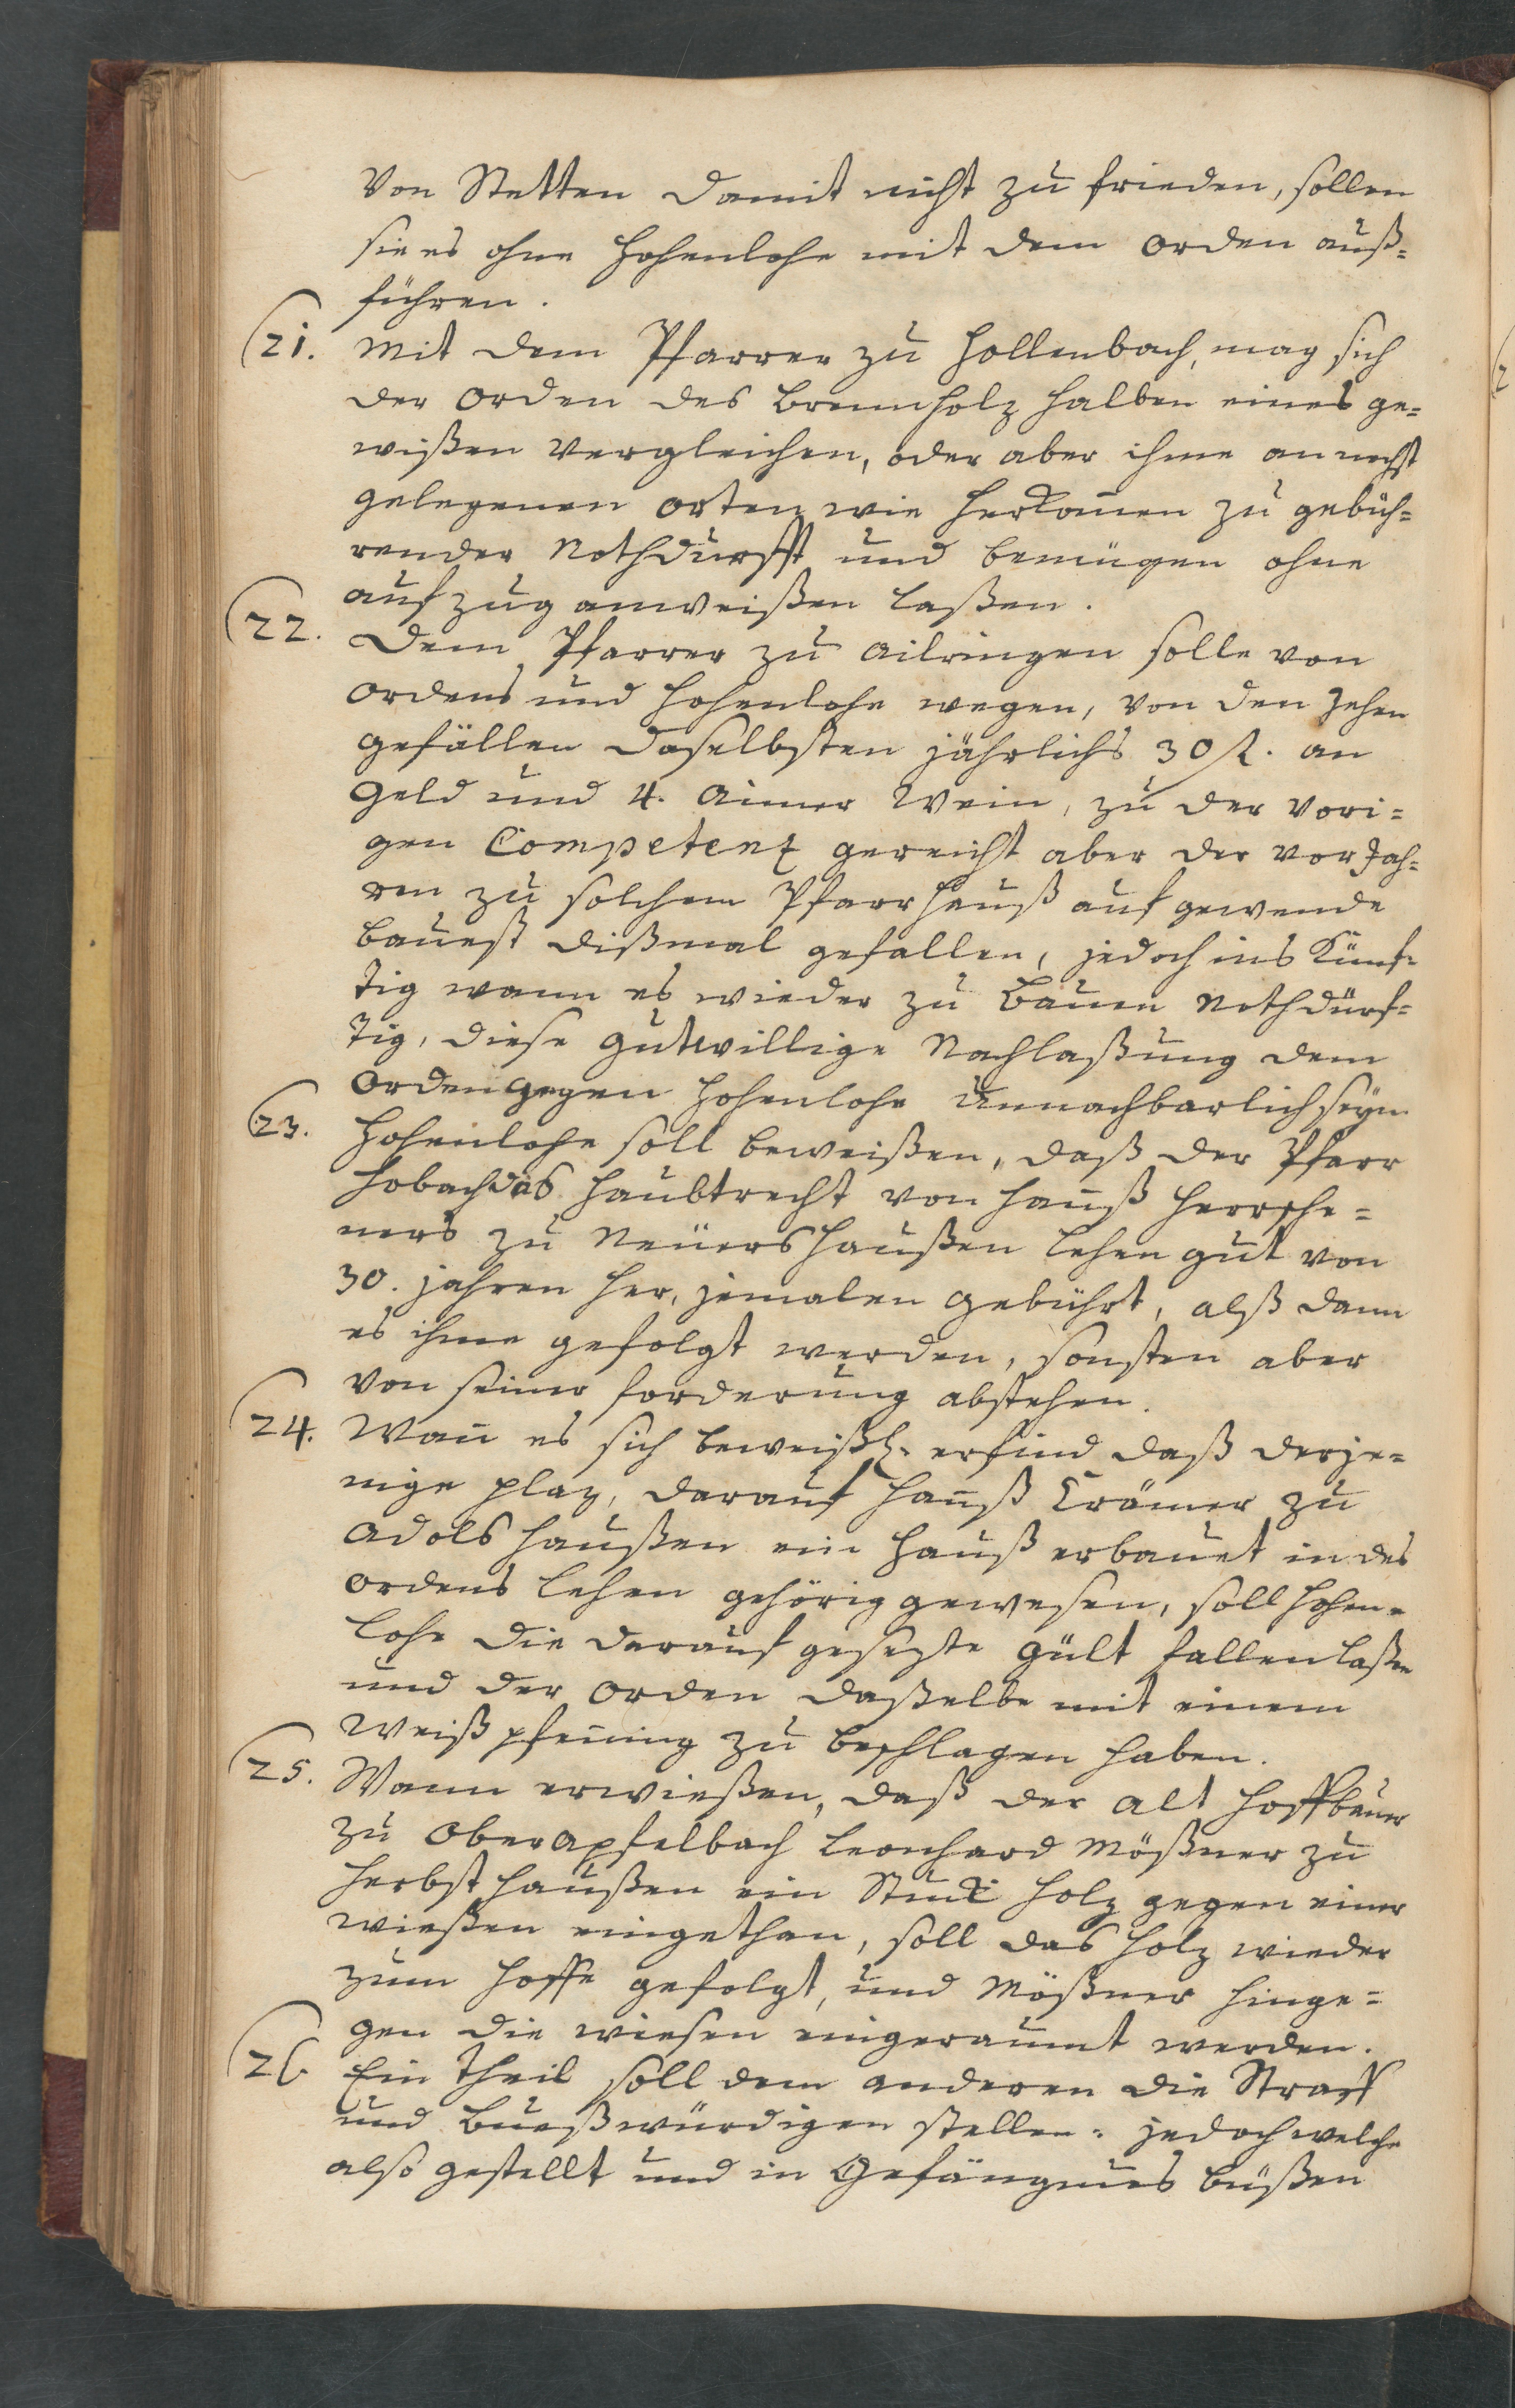 Von Stetten damit nicht zu frieden, sollen
sie es ohne Hohenlohe mit dem Orden auß=
führen.
21. Mit dem Pfarrer zu Hollenbach, mag sich
der Orden des Brennholz halben eines ge=
wißen vergleichen, oder aber ihme an nechst
gelegenen orten wie herkom̄en zu gebüh=
render Nothdurfft und benügen ohne
aufzug anweißen laßen.
22. Dem Pfarrer zu Ailringen solle von
Ordens und Hohenlohe wegen, von den Zehen
gefällen daselbsten jährlichs 30 fl. an
Geld und 4. Aimer Wein, zu der vori=
gen Competenz gereicht aber der vor Jah=
ren zu solchem Pfarrhauß auf gewende
Baukost dißmal gefallen, jedoch ins Künf=
tig wann es wieder zu Bauen Nothdürf=
tig, diese gutwillige Nachlaßung dem
Orden gegen Hohenlohe Unnachbarlich seyn.
23. Hohenlohe soll beweißen, daß der Pfarr
Hobach das Haubtrecht von Hanß
zu Neuershaußen lehen gut von
30. jahren her, jemalen gebührt, alß dann
es ihme gefolgt werden, sonsten aber
von seiner forderung abstehen.
24. Wan̄ es sich beweißl. erfind daß derje=
nige plaz, darauf Hanß Crämer zu
Adolshaußen ein Hauß erbauet in des
Ordens lehen gehörig gewesen, soll Hohen=
lohe die darauf gesezte gült fallen laßen
und der Orden daßelbe mit einem
Weiß pfen̄ing zu beschlagen haben.
25. Wann erwießen, daß der alt Hoffbauer
zu Oberapfelbach Leonhard Mößner zu
Herbsthaußen ein Stuck Holz gegen einer
wießen eingethan, soll das Holz wieder
zum Hoffe gefolgt, und Mößner hinge=
gen die wiesen eingeraumt werden.
26. Ein theil soll dem anderen die Straff
und Bueßwürdigen stellen: jedoch welche
also gestellt und in Gefängnus büßen